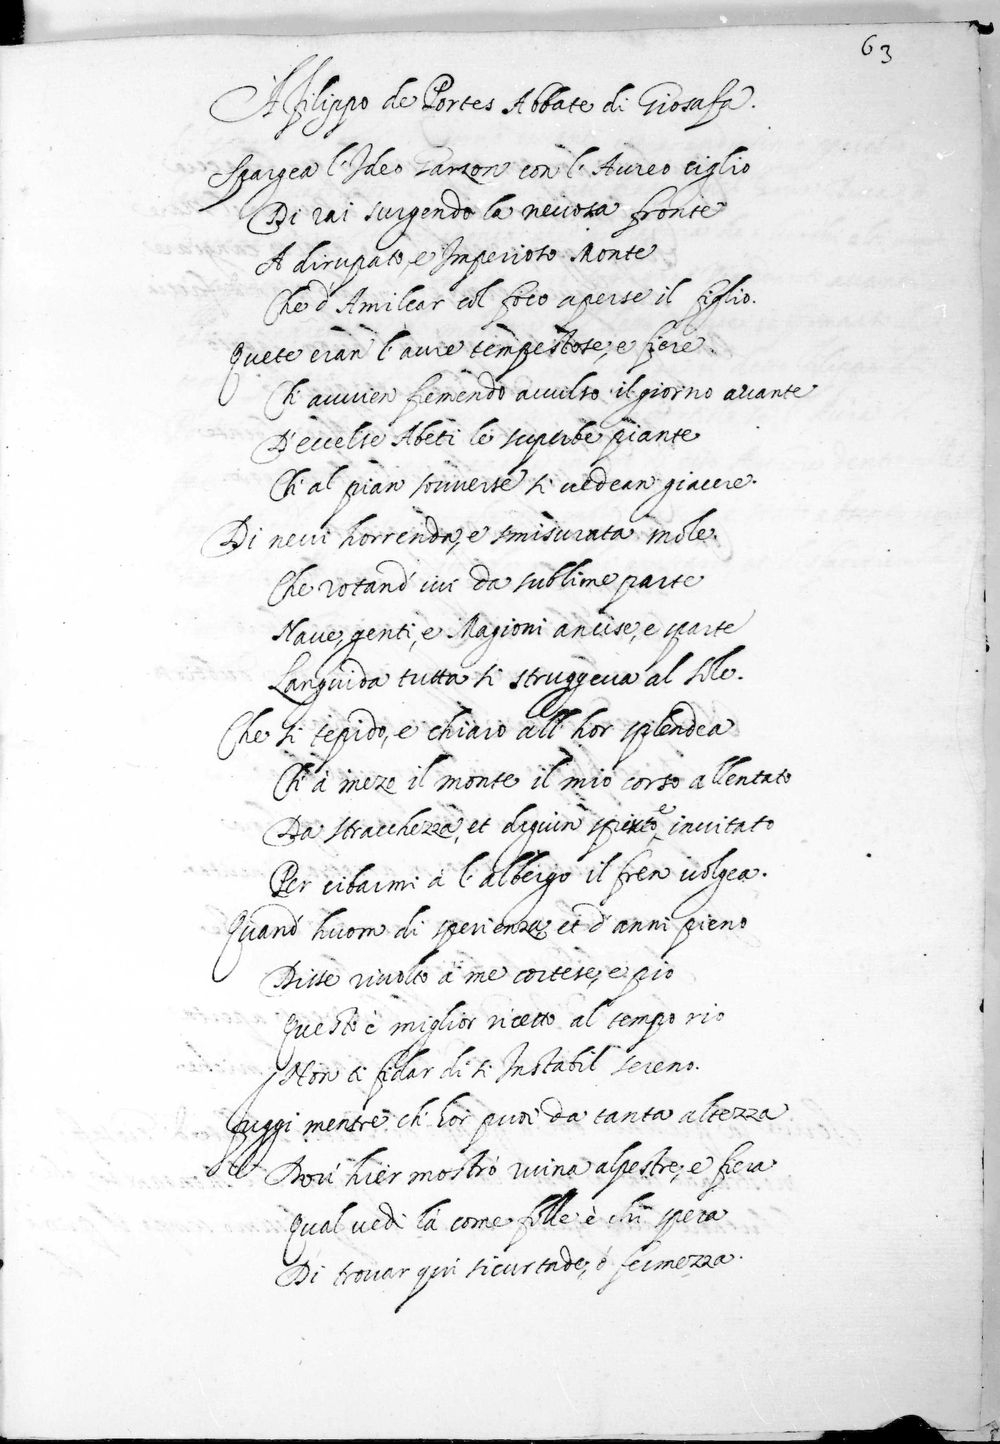 63
A Filippo de Portes Abbate di Giosafa.
Spargea l'Ideo Garzon con l'Aureo ciglio
Di rai surgendo la nevosa fronte
A dirupato, e Imperioso Monte
Che d'Amilcar col foco aperse il figlio.
Quete eran l'aure tempestose, e fiere
Ch'avvien fremendo avulso il giorno avante
D'eccelse Abeti le superbe piante
Ch'al pian sovverse si vedean giacere.
Di nevi horrenda, e smisurata mole
Che rotand' ivi da sublime parte
Have, genti, e Magioni ancise, e sparte
Languida tutta si struggeva al Sole.
Che sì tepido, e chiaro all'hor splendea
Ch'à mezo il monte il mio corso allentato
Da stracchezza, et digiun invitato
Per cibarmi à l'albergo il fren volgea.
Quand' huom di sperienza, et d'anni pieno
Disse rivolto à me cortese, e pio
Questo è miglior ricetto al tempo rio
Non ti fidar di sì Instabil sereno.
Fuggi mentre ch'hor puoi da tanta altezza
Dov' hier mostrò ruina alpestre, e fiera
Qual vedi là come folle è chi spera
Di trovar qui sicurtade, ò fermezza.